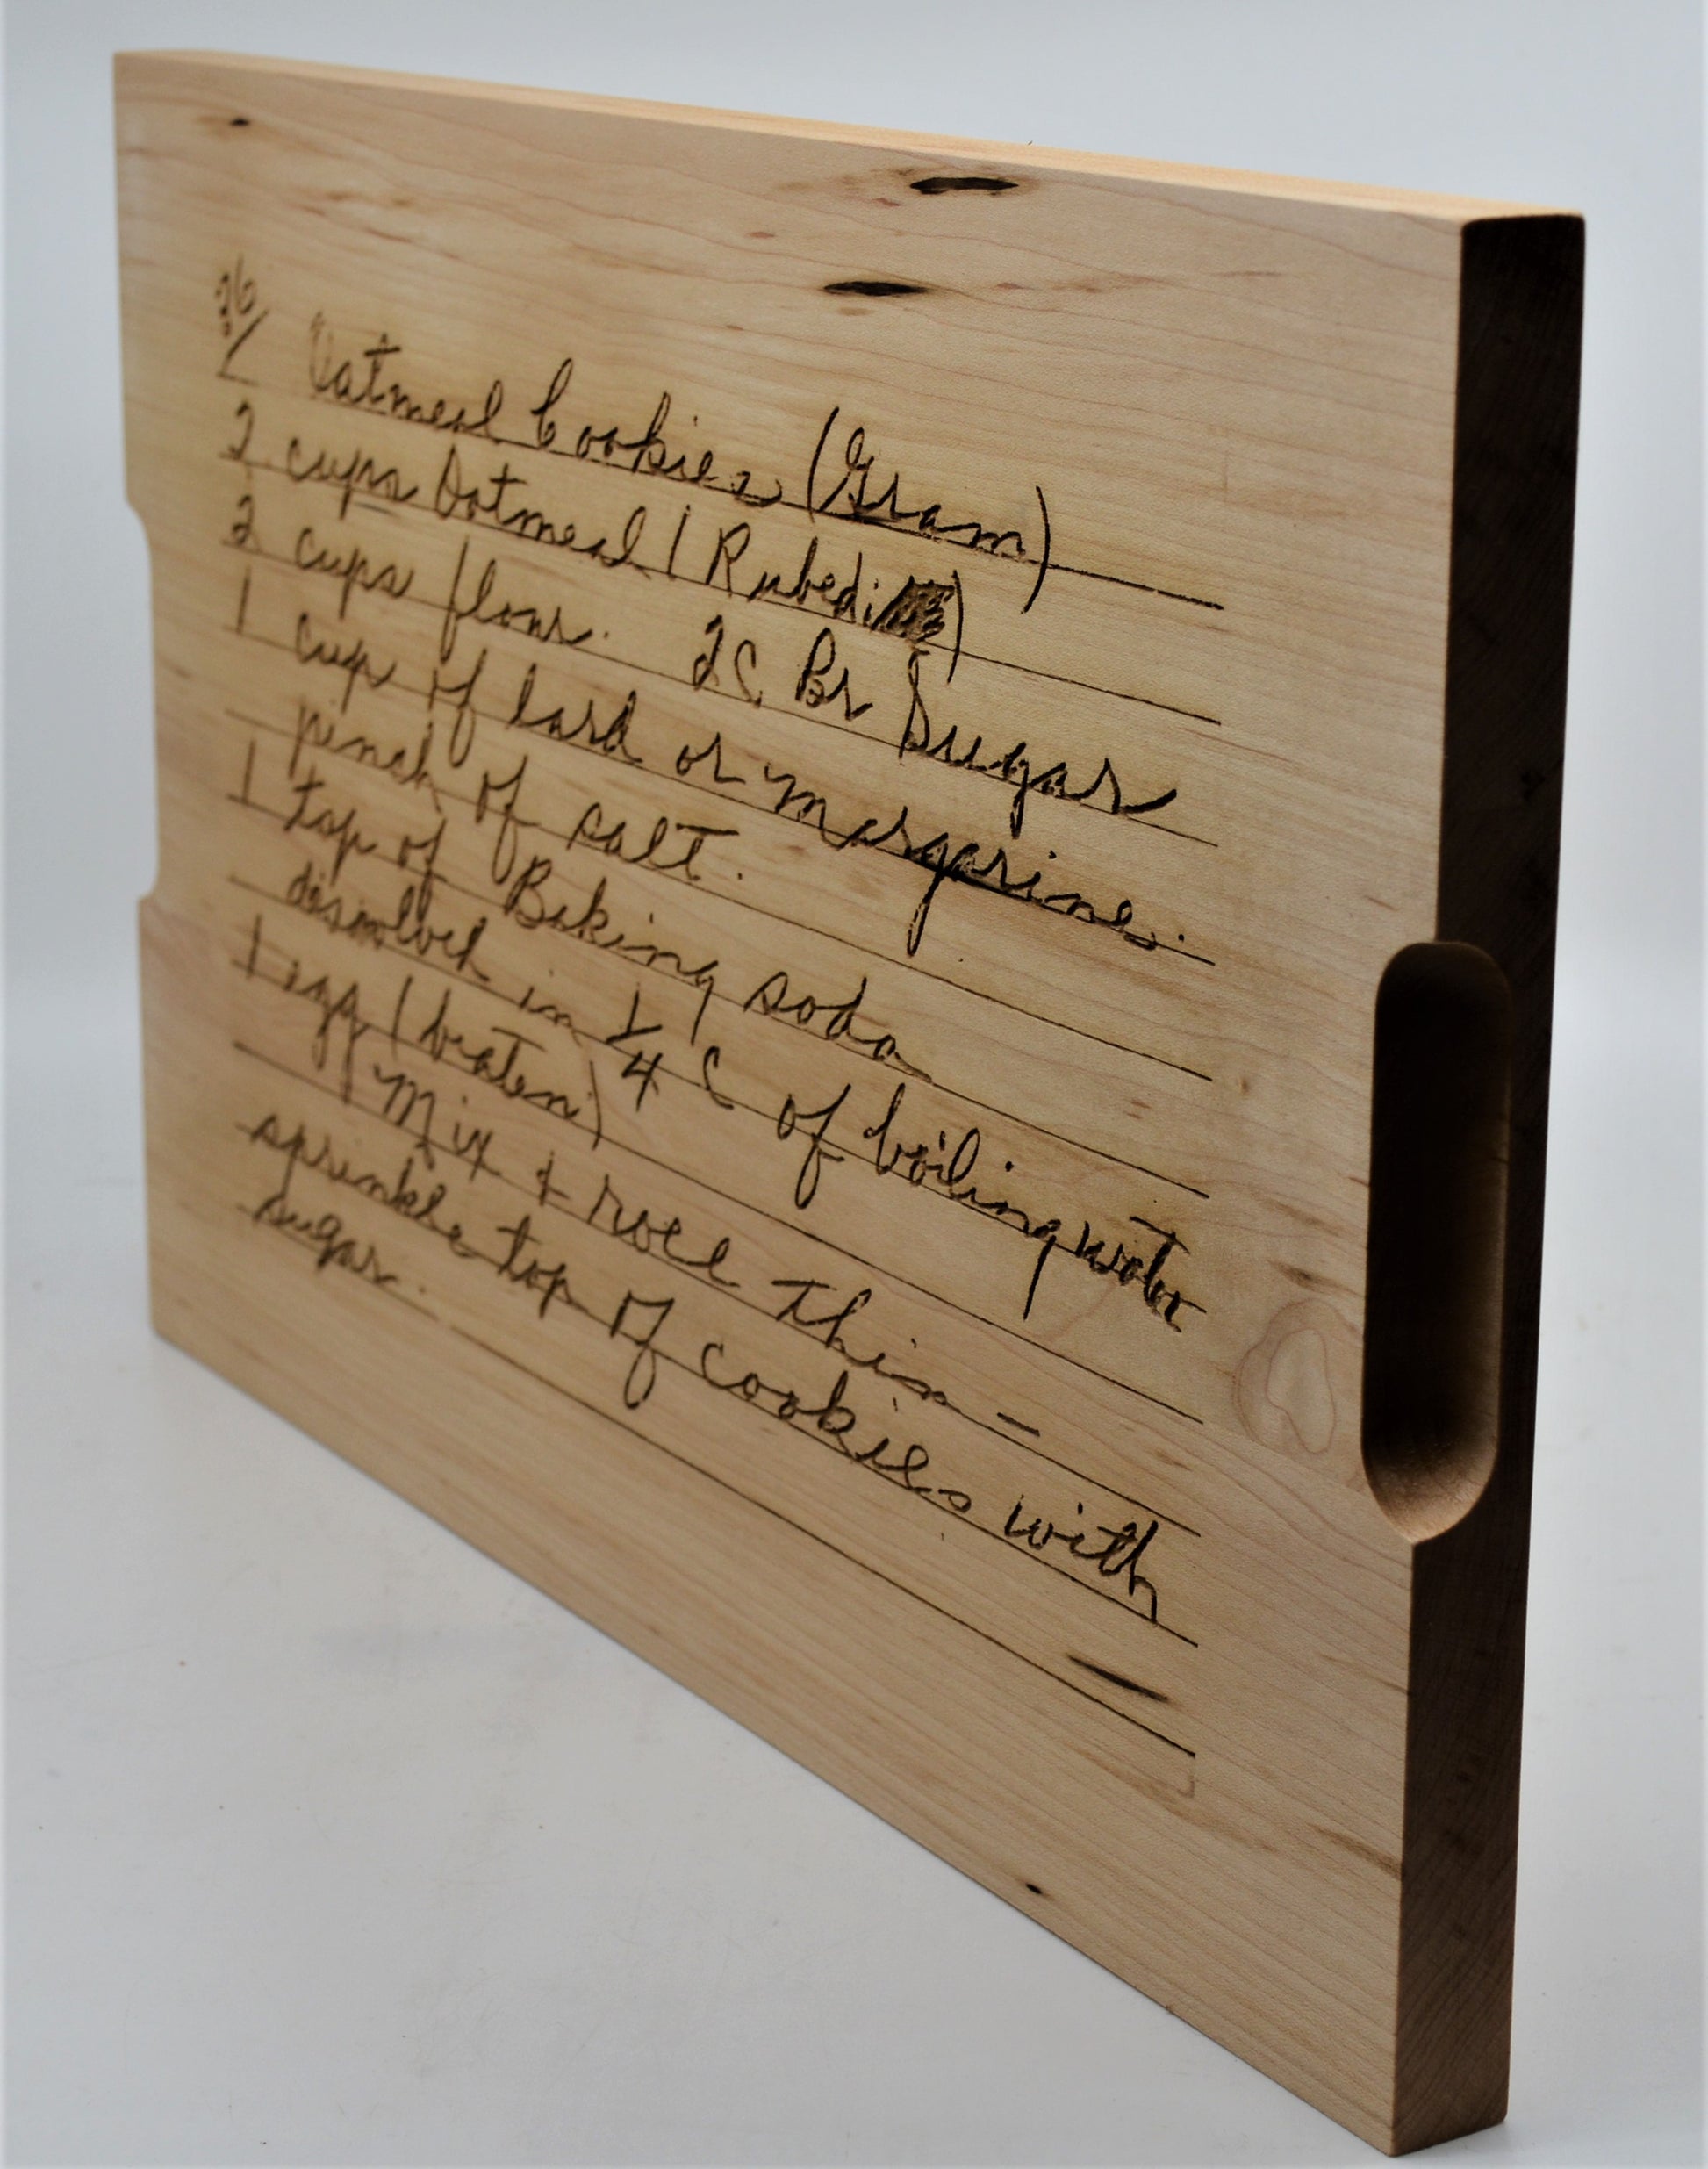 26/ Oatmeal Cookies (Gram)
2 cups Oatmeal (Rubedi)
2 cups flour. 2C Br Sugar
1 cup of lard or margarine.
pinch of salt.
1 tsp of Baking soda
disolved in 1/4 C of boiling water
1 egg (beaten)
Mix & roll thin —
sprinkle top of cookies with
sugar.